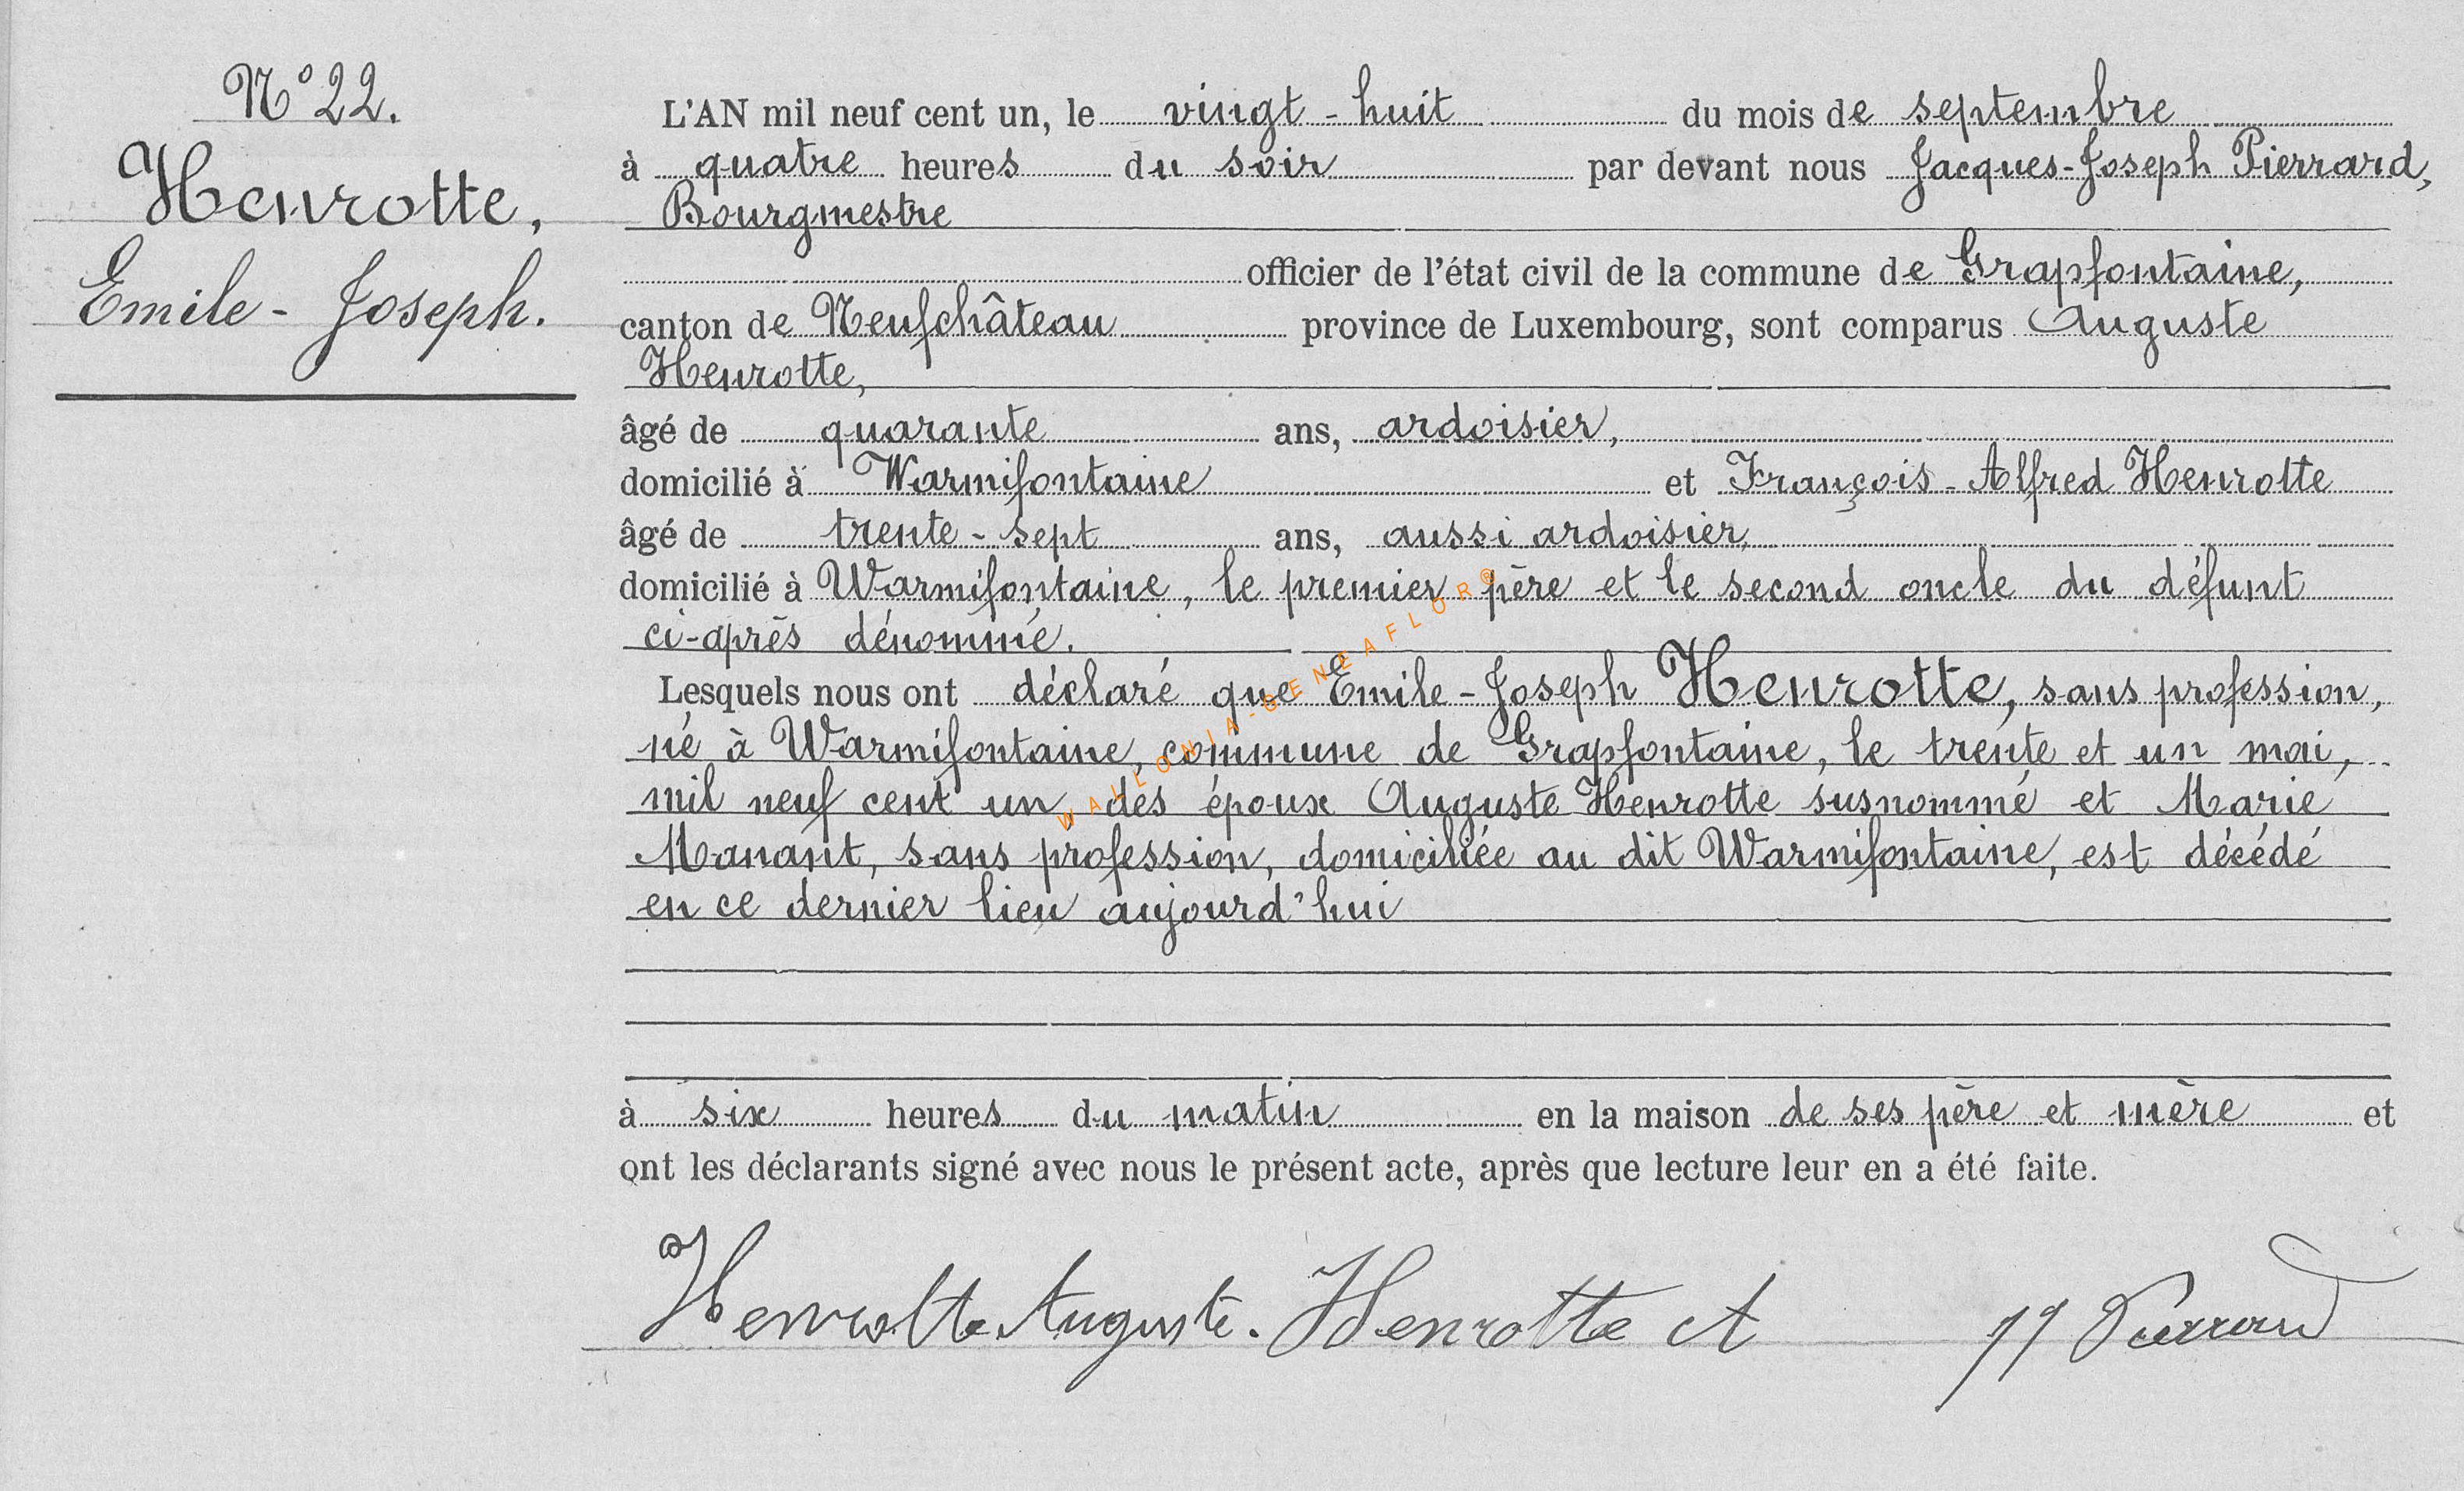 N° 22.
Henrotte,
Emile - Joseph.
L'AN mil neuf cent un, le vingt - huit du mois de septembre
à quatre heures du soir par devant nous Jacques-Joseph Pierrard,
Bourgmestre
officier de l'état civil de la commune de Grapfontaine,
canton de Neufchâteau province de Luxembourg, sont comparus Auguste
Henrotte,
âgé de quarante ans, ardoisier,
domicilié à Warmifontaine et François - Alfred Henrotte
âgé de trente - sept ans, aussi ardoisier,
domicilié à Warmifontaine, le premier père et le second oncle du défunt
ci-après dénommé.
Lesquels nous ont déclaré que Emile - Joseph Henrotte, sans profession,
né à Warmifontaine, commune de Grapfontaine, le trente et un mai,
mil neuf cent un, des époux Auguste Henrotte susnommé et Marie
Manant, sans profession, domiciliée au dit Warmifontaine, est décédé
en ce dernier lieu aujourd'hui
à six heures du matin en la maison de ses père et mère et
ont les déclarants signé avec nous le présent acte, après que lecture leur en a été faite.
Henrotte Auguste. Henrotte A JJ Pierrard
WALLONIA-GENEAFLOR®